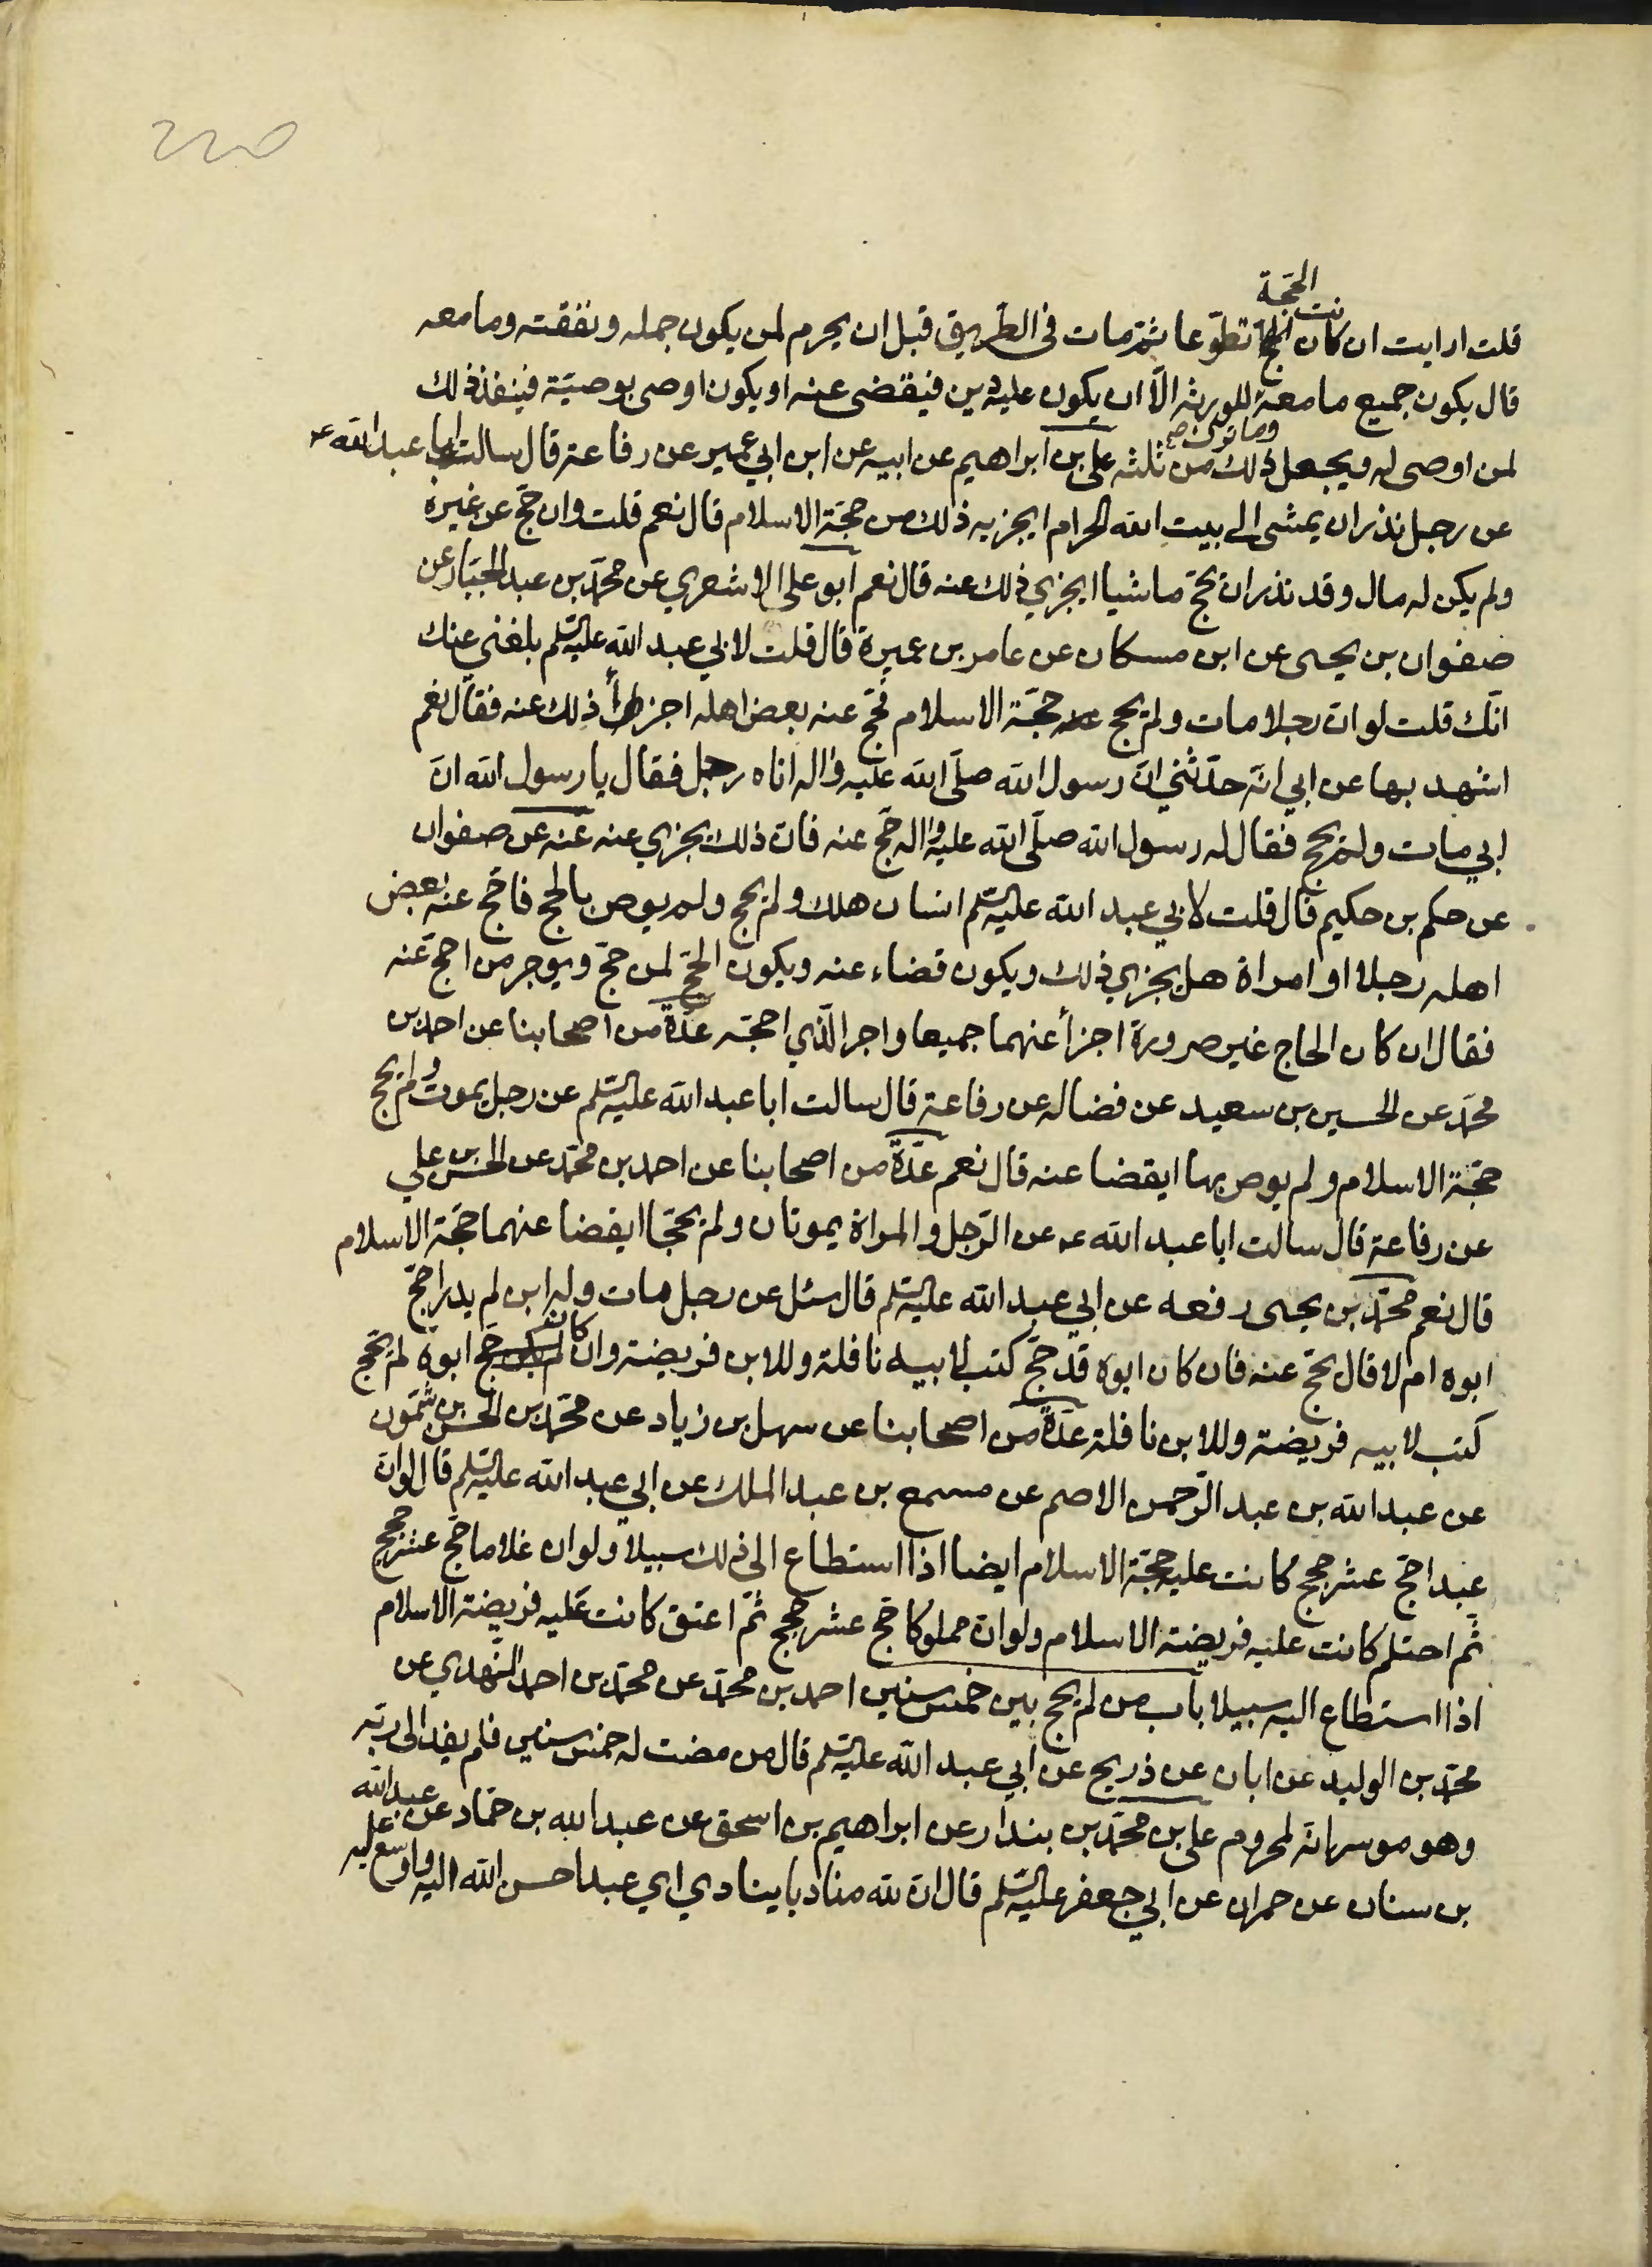 الحجة
قلت ارايت ان كانت الحج تطوعا ثم مات فى الطريق قبل ان يحرم لمن يكون جمله ونفقته وما معه
قال يكون جميع ما معه للورثه الا ان يكون عليه دين فيقضى عنه او يكون اوصى بوصيّة فينفذ ذلك
وما ترك صح
لمن اوصى له ويجعل ذلك من ثلثه على بن ابراهيم عن ابيه عن ابن ابي عمير عن رفاعة قال سالت ابا عبد الله ع
عن رجل نذر ان يمشى الى بيت الله الحرام ايجزيه ذلك من حجّة الاسلام قال نعم قلت وان حجّ عن غيره
ولم يكن له مال وقد نذر ان يحجّ ماشيا ايجزي ذلك عنه قال نعم ابو على الاشعري عن محمّد بن عبد الجبّار عن
صفوان بن يحيى عن ابن مسكان عن عامر بن عميرة قال قلت لابي عبد الله عليه السّلم بلغني عنك
انّك قلت لو انّ رجلا مات ولم يحج حجّة الاسلام فحجّ عنه بعض اهله اجزأ ذلك عنه فقال نعم
اشهد بها عن ابي انّه حدّثني انّ رسول الله صلّى الله عليه واله اتاه رجل فقال يا رسول الله انّ
ابي مات ولم يحج فقال له رسول الله صلّى الله عليه واله حجّ عنه فانّ ذلك يجزي عنه عنه عن صفوان
عن حكم بن حكيم قال قلت لابي عبد الله عليه السّلم انسان هلك ولم يحج ولم يوص بالحج فاحّج عنه بعض
اهله رجلا او امراة هل يجزي ذلك ويكون قضاء عنه ويكون الحجّ لمن حجّ ويوجر من احجّ عنه
فقال ان كان الحاج غير صرورة اجزأ عنهما جميعا واجر الّذي احجّه عدّة من اصحابنا عن احمد بن
محمّد عن الحسين بن سعيد عن فضاله عن رفاعة قال سالت ابا عبد الله عليه السّلم عن رجل يموت ولم يحج
حجّة الاسلام ولم يوص بها ايقضا عنه قال نعم عدّة من اصحابنا عن احمد بن محمّد عن الحسن بن علي
عن رفاعة قال سالت ابا عبد الله ع عن الرّجل والمراة يموتان ولم يحجّا ايقضا عنهما حجّة الاسلام
قال نعم محمّد بن يحيى رفعه عن ابي عبد الله عليه السّلم قال سئل عن رجل مات وله ابن لم يدر احجّ
ابوه ام لا قال يحجّ عنه فان كان ابوه قد حجّ كتب لابيه نافلة وللابن فريضة وان كان لم يكن حجّ ابوه لم يحجّ
كتب لابيه فريضة وللابن نافلة عدّة من اصحابنا عن سهل بن زياد عن محمّد بن الحسن بن شمّون
عن عبد الله بن عبد الرّحمن الاصم عن مسمع بن عبد الملك عن ابي عبد الله عليه السّلم قال لو انّ
عبدا حجّ عشر حجج كانت عليه حجّة الاسلام ايضا اذا استطاع الى ذلك سبيلا ولو ان غلاما حجّ عشر حجج
ثمّ احتلم كانت عليه فريضة الاسلام ولو انّ مملوكا حجّ عشر حجج ثمّ اعتق كانت عليه فريضة الاسلام
اذا استطاع اليه سبيلا باب من لم يحج بين خمس سنين احمد بن محمّد عن محمّد بن احمد النّهدي عن
محمّد بن الوليد عن ابان عن ذريح عن ابي عبد الله عليه السّلم قال من مضت له خمس سنين فلم يفد الى ربّه
وهو موسر انّه لمحروم على بن محمّد بن بندار عن ابراهيم بن اسحق عن عبد الله بن حمّاد عن عبد الله
بن سنان عن حمران عن ابي جعفر عليه السّلم قال انّ لله مناديا ينادي اي عبد احسن الله اليه واوسع عليه